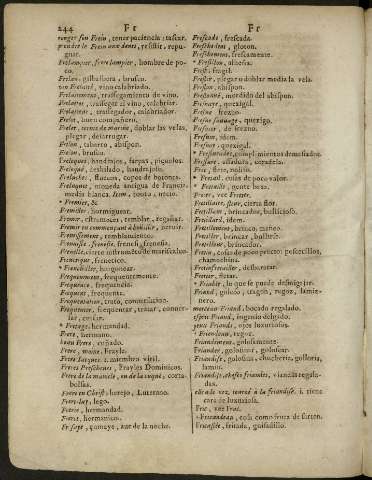 244 Fr Fr
ronger son Frein, tener paciencia: tascar.
prendre le Frein aux dents, resistir, repu-
gnar.
Frelampier, frere lampier, hombre de po-
co.
Frelon, brusco.
vin Frelaté, vino celebrado.
Frelatement, trassegamiento de vino.
Frelater, trassegar el vino, celebrar.
Frelateur, trassegador, celebrador.
Frelot, buen compañero.
Freler, terme de marine, doblar las velas,
plegar, desarrugar.
Frelon, tabarro, abispon.
Frelon, brusco.
Freloques, handrajos, farpas, piçuelos.
Freloqué, deshilado, handrajoso.
Freluche, fluecos, copos de botones.
Freluque, moneda antigua de Francia,
media blanca. Item, touca, necio.
* Fremier, &
Fremiller, hormiguear.
Fremir, estremecer, temblar, regañar.
Fremir en commençant à bouillir, heruir.
Fremissement, temblamiento.
Frenaisie, frenesie, frenesi, frenesia.
Frenetique, frenetico.
* Frenchiller, hanguear.
Frequemment, frequentemente.
Frequence, frequencia.
Frequent, frequente.
Frequentation, trato, conuersacion.
Frequenter, frequentar, tratar, conuer-
sar, cursar.
* Frerage, hermandad.
Frere, hermano.
beau Frere, cuñado.
Frere, moine, Frayle.
Frere Jacques, i. miembro viril.
Freres Prescheurs, Frayles Dominicos.
Frere de la manicle, ou de la cuque, corta-
bolsas.
Frere en Christ, herejo, Luterano.
Frere-lay, lego.
Frerie, hermandad.
Freret, hermanico.
Fresaye, çumaya, aue de la noche.
Frescade, frescada.
Freschedent, gloton.
Freschement, frescamente.
* Fresillon, alheña.
Fresl, fragil.
Fresler, plegar o doblar media la vela.
Freslon, abispon.
Freslonné, mordido del abispon.
Fresnaye, quexigal.
Fresne, fresno.
Fresne sauuage, quexigo.
Fresnier, de fresno.
Fresnin, idem.
Fresnay, quexigal.
* Fressurades, cumplimientos demasiados.
Fressure, assadura, coradela.
Fret, flete, nolito.
* Fretail, cosas de poco valor.
* Fretaille, gente boxa.
Freter, vee Fretter.
Fretillaire, fleur, cierta flor.
Fretillant, brincador, bullicioso.
Fretillard, idem.
Fretillement, brinco, meneo.
Fretiller, brincar, bullirse.
Fretilleur, brincador.
Fretin, cosas de poco precio: pescecillos,
chamuchina.
Fretinfretailler, desbaratar.
Fretter, fletar.
* Friable, lo que se puede desmigajar.
Friand, goloso, tragon, regoz, lamie-
nero.
morceau Friand, bocado regalado.
esprit Friand, ingenio delgado.
yeux Friands, ojos luxuriosos.
* Friandeau, regoz.
Friandement, golosamente.
Friander, golosinar, golosear.
Friandise, golosina, chucheria, golloria,
lamin.
Friandise, choses friandes, viandas regala-
das.
elle a le nez tourné à la friandise, i. tiene
cara de luxuriosa.
Fric, vee Froc.
* Fricandeau, cosa como fruta de sarten.
Fricassée, fritada, guisadillo.